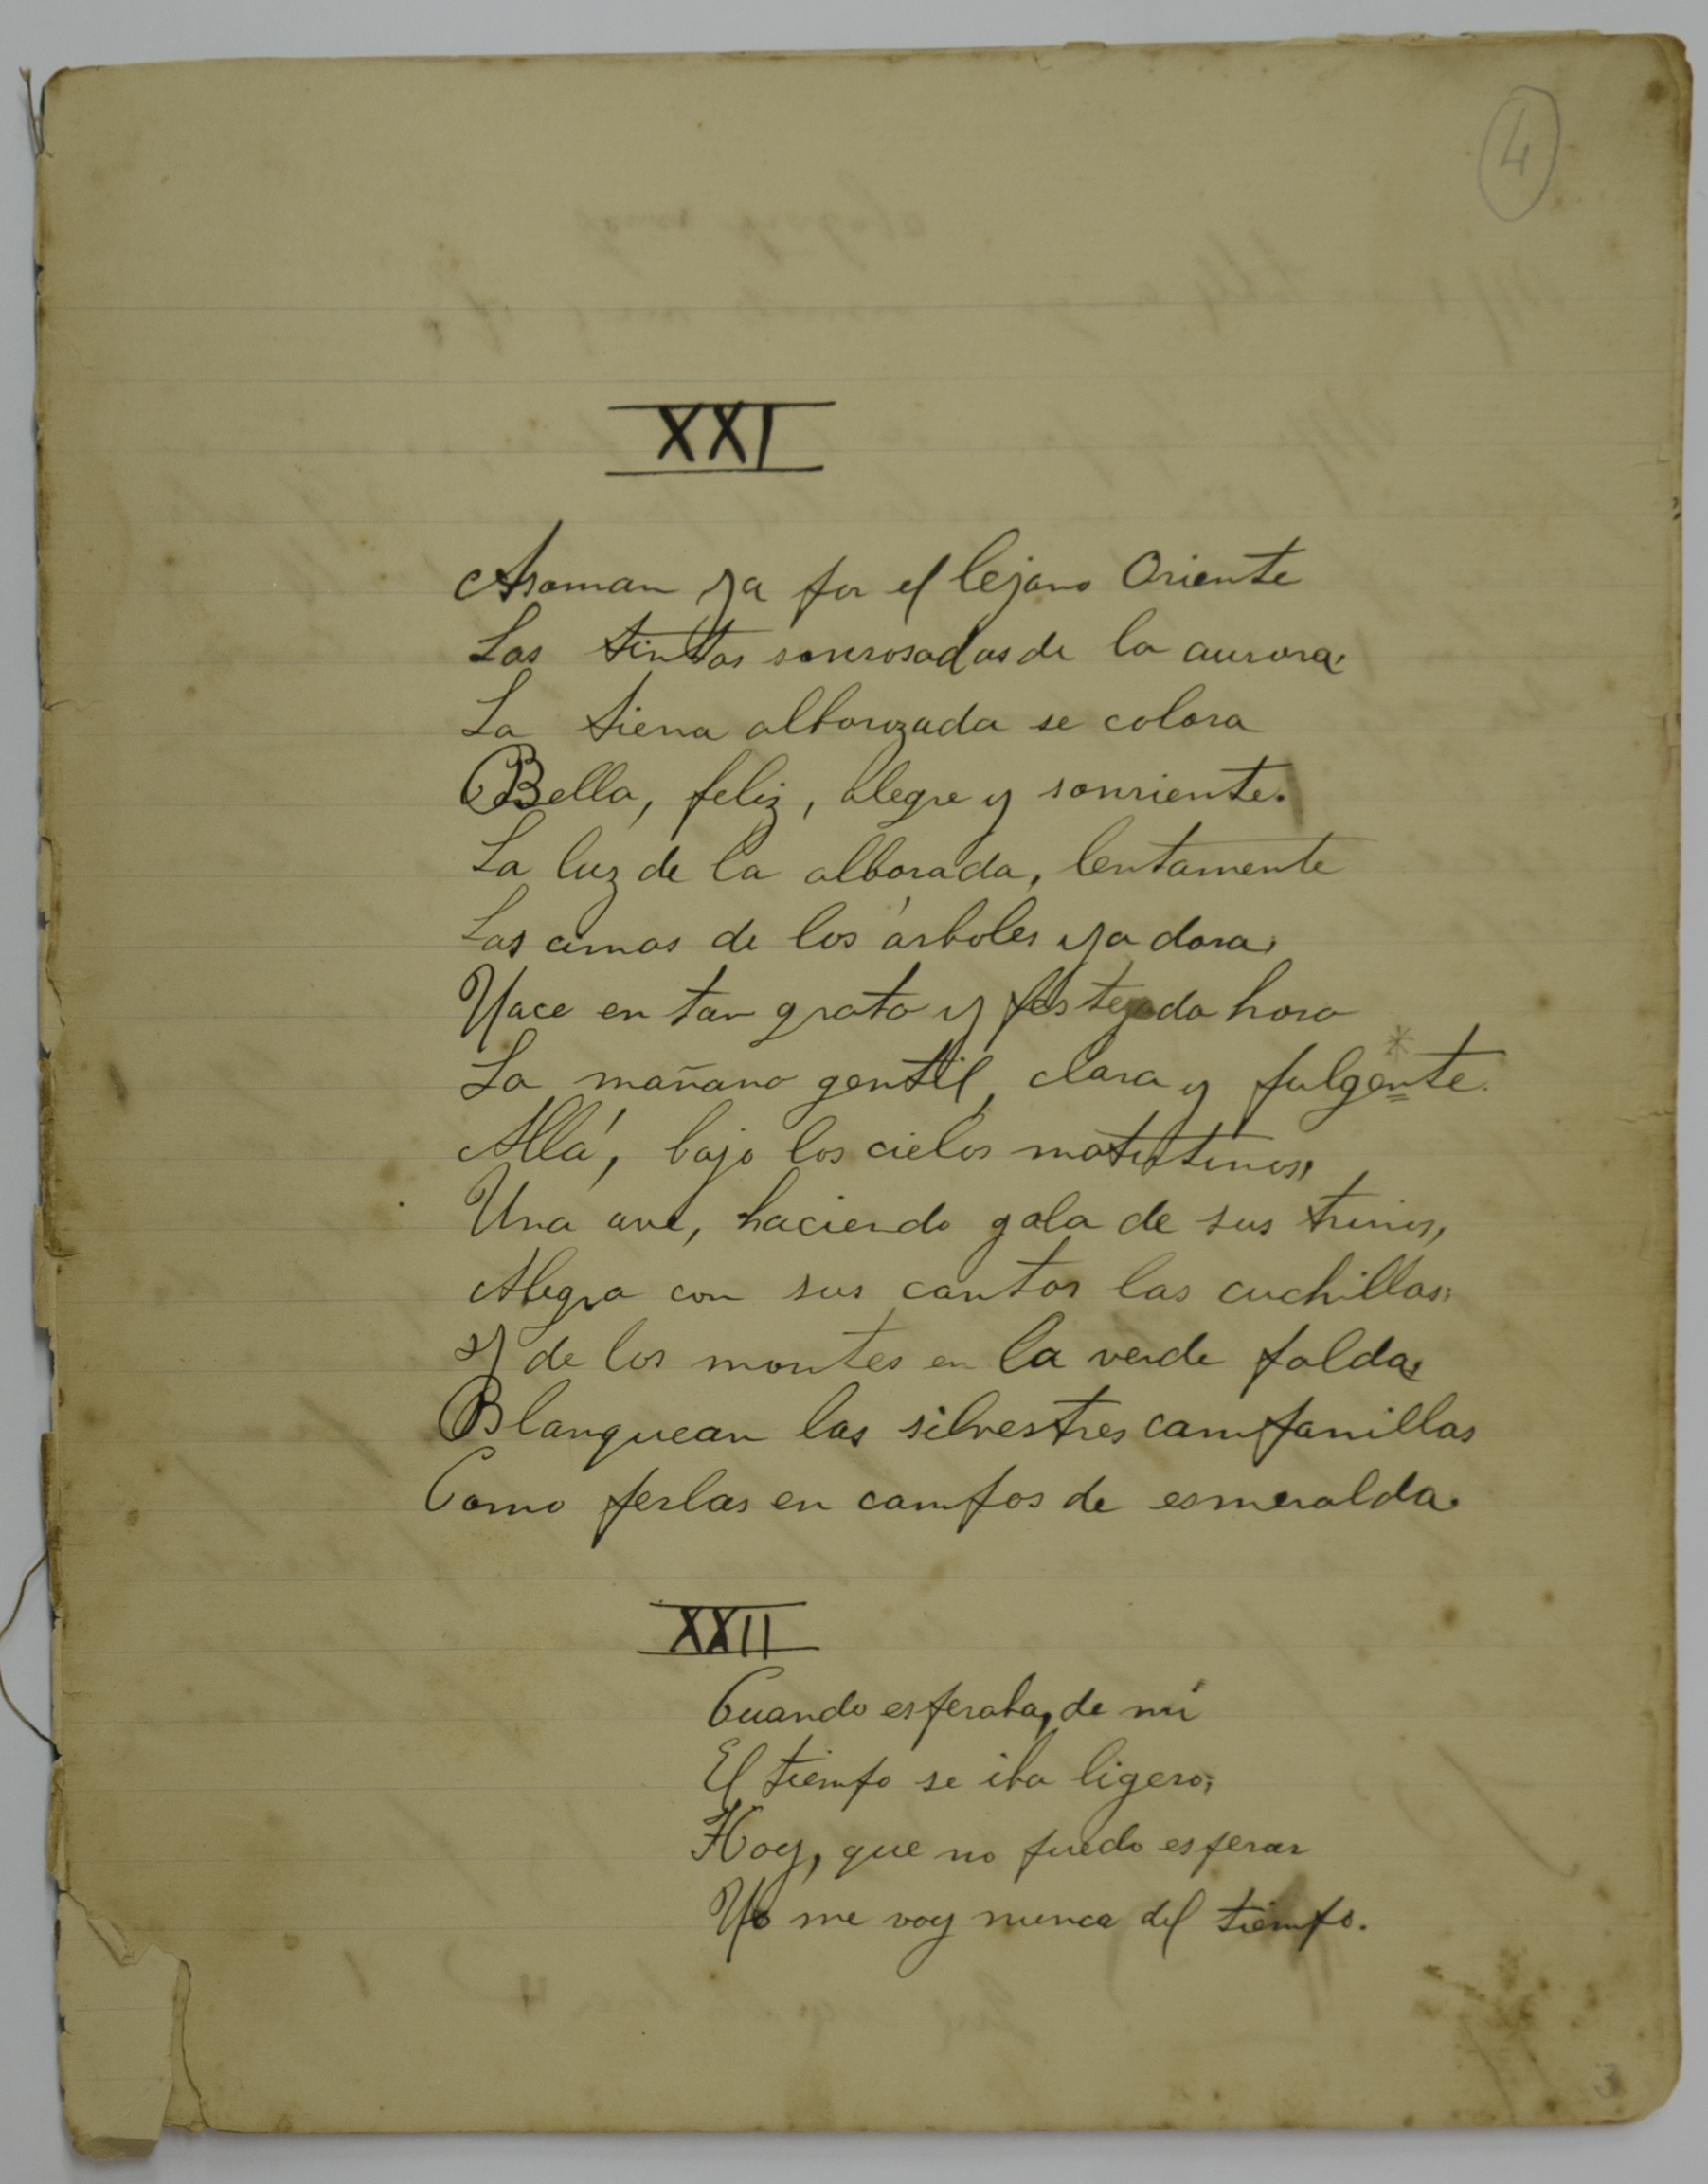 4
XXI
Asoman ya por el lejano Oriente
Las tintas sonrosadas de la aurora;
La tierra alborozada se colora
Bella, feliz, alegre y sonriente.
La luz de la alborada, lentamente
Las cimas de los árboles ya dora;
Nace en tan grata y festejada hora
La mañana gentil, clara y fulgente.
Allá, bajo los cielos matutinos,
Una ave, haciendo gala de sus trinos,
Alegra con sus cantos las cuchillas;
Y de los montes en la verde falda,
Blanquean las silvestres campanillas
Como perlas en campos de esmeralda.
XXII
Cuando esperaba, de mí
El tiempo se iba ligero;
Hoy, que no puedo esperar
Yo me voy nunca del tiempo.
3